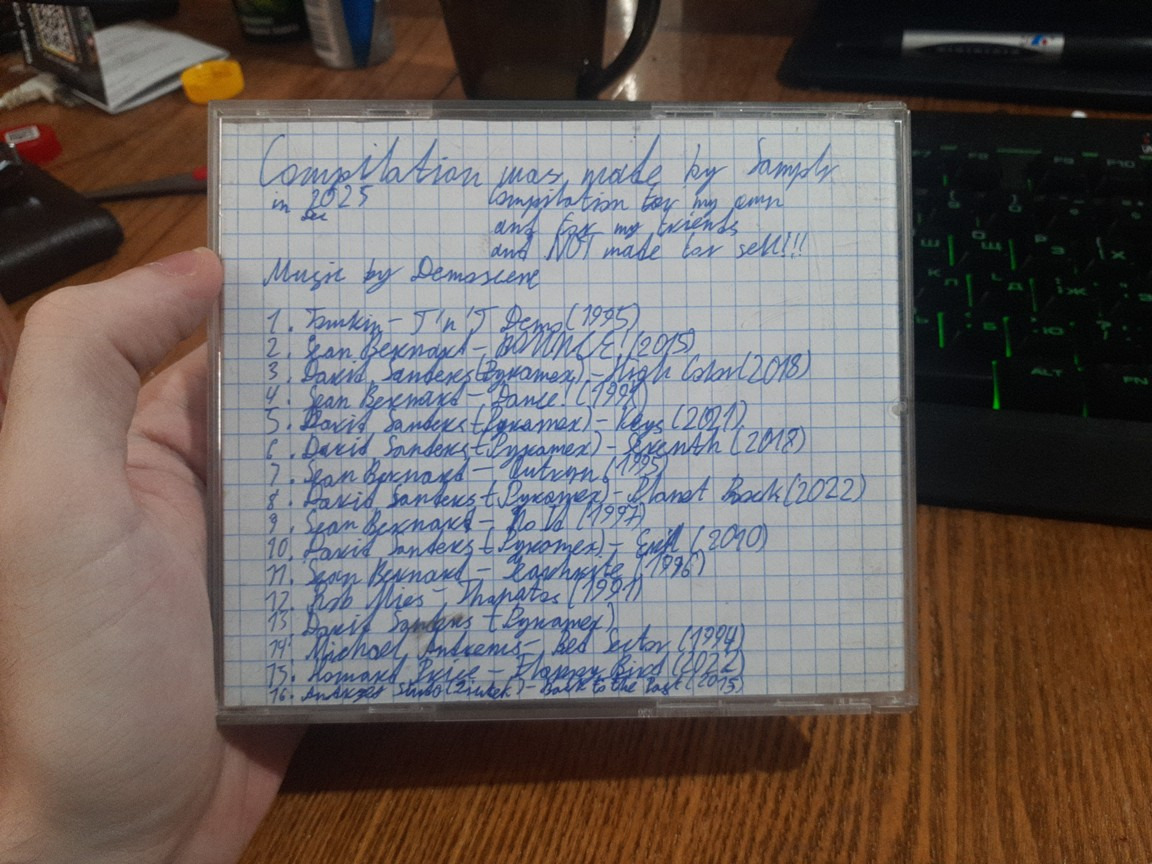 Compilation was made by Samplr
in 2025
Dec
Compilation for my own
and for my friends
and NOT made for sell!!!
Music by Demoscene
1. Tomkin - T'n'T Demo (1995)
2. Sean Bernard - BOUNCE! (2015)
3. David Sanders (Dynamex) - High Color (2018)
4. Sean Bernard - Dance! (1995)
5. David Sanders (Dynamex) - Keys (2021)
6. David Sanders (Dynamex) - Seventh (2018)
7. Sean Bernard - Autumn (1995)
8. David Sanders (Dynamex) - Planet Rock (2022)
9. Sean Bernard - (1997)
10. David Sanders (Dynamex) - (2010)
11. Sean Bernard - (1996)
12. Rob Mies - Thanatos (1991)
13. David Sanders (Dynamex)
14. Michael - Red Sector (1994)
15. Price - Flappy Bird (2022)
16. - Back to the Past (2015)
F7 F8 F9 F10
Ш Щ З Х
Л Д Ж Э
Б Ю
ALT FN